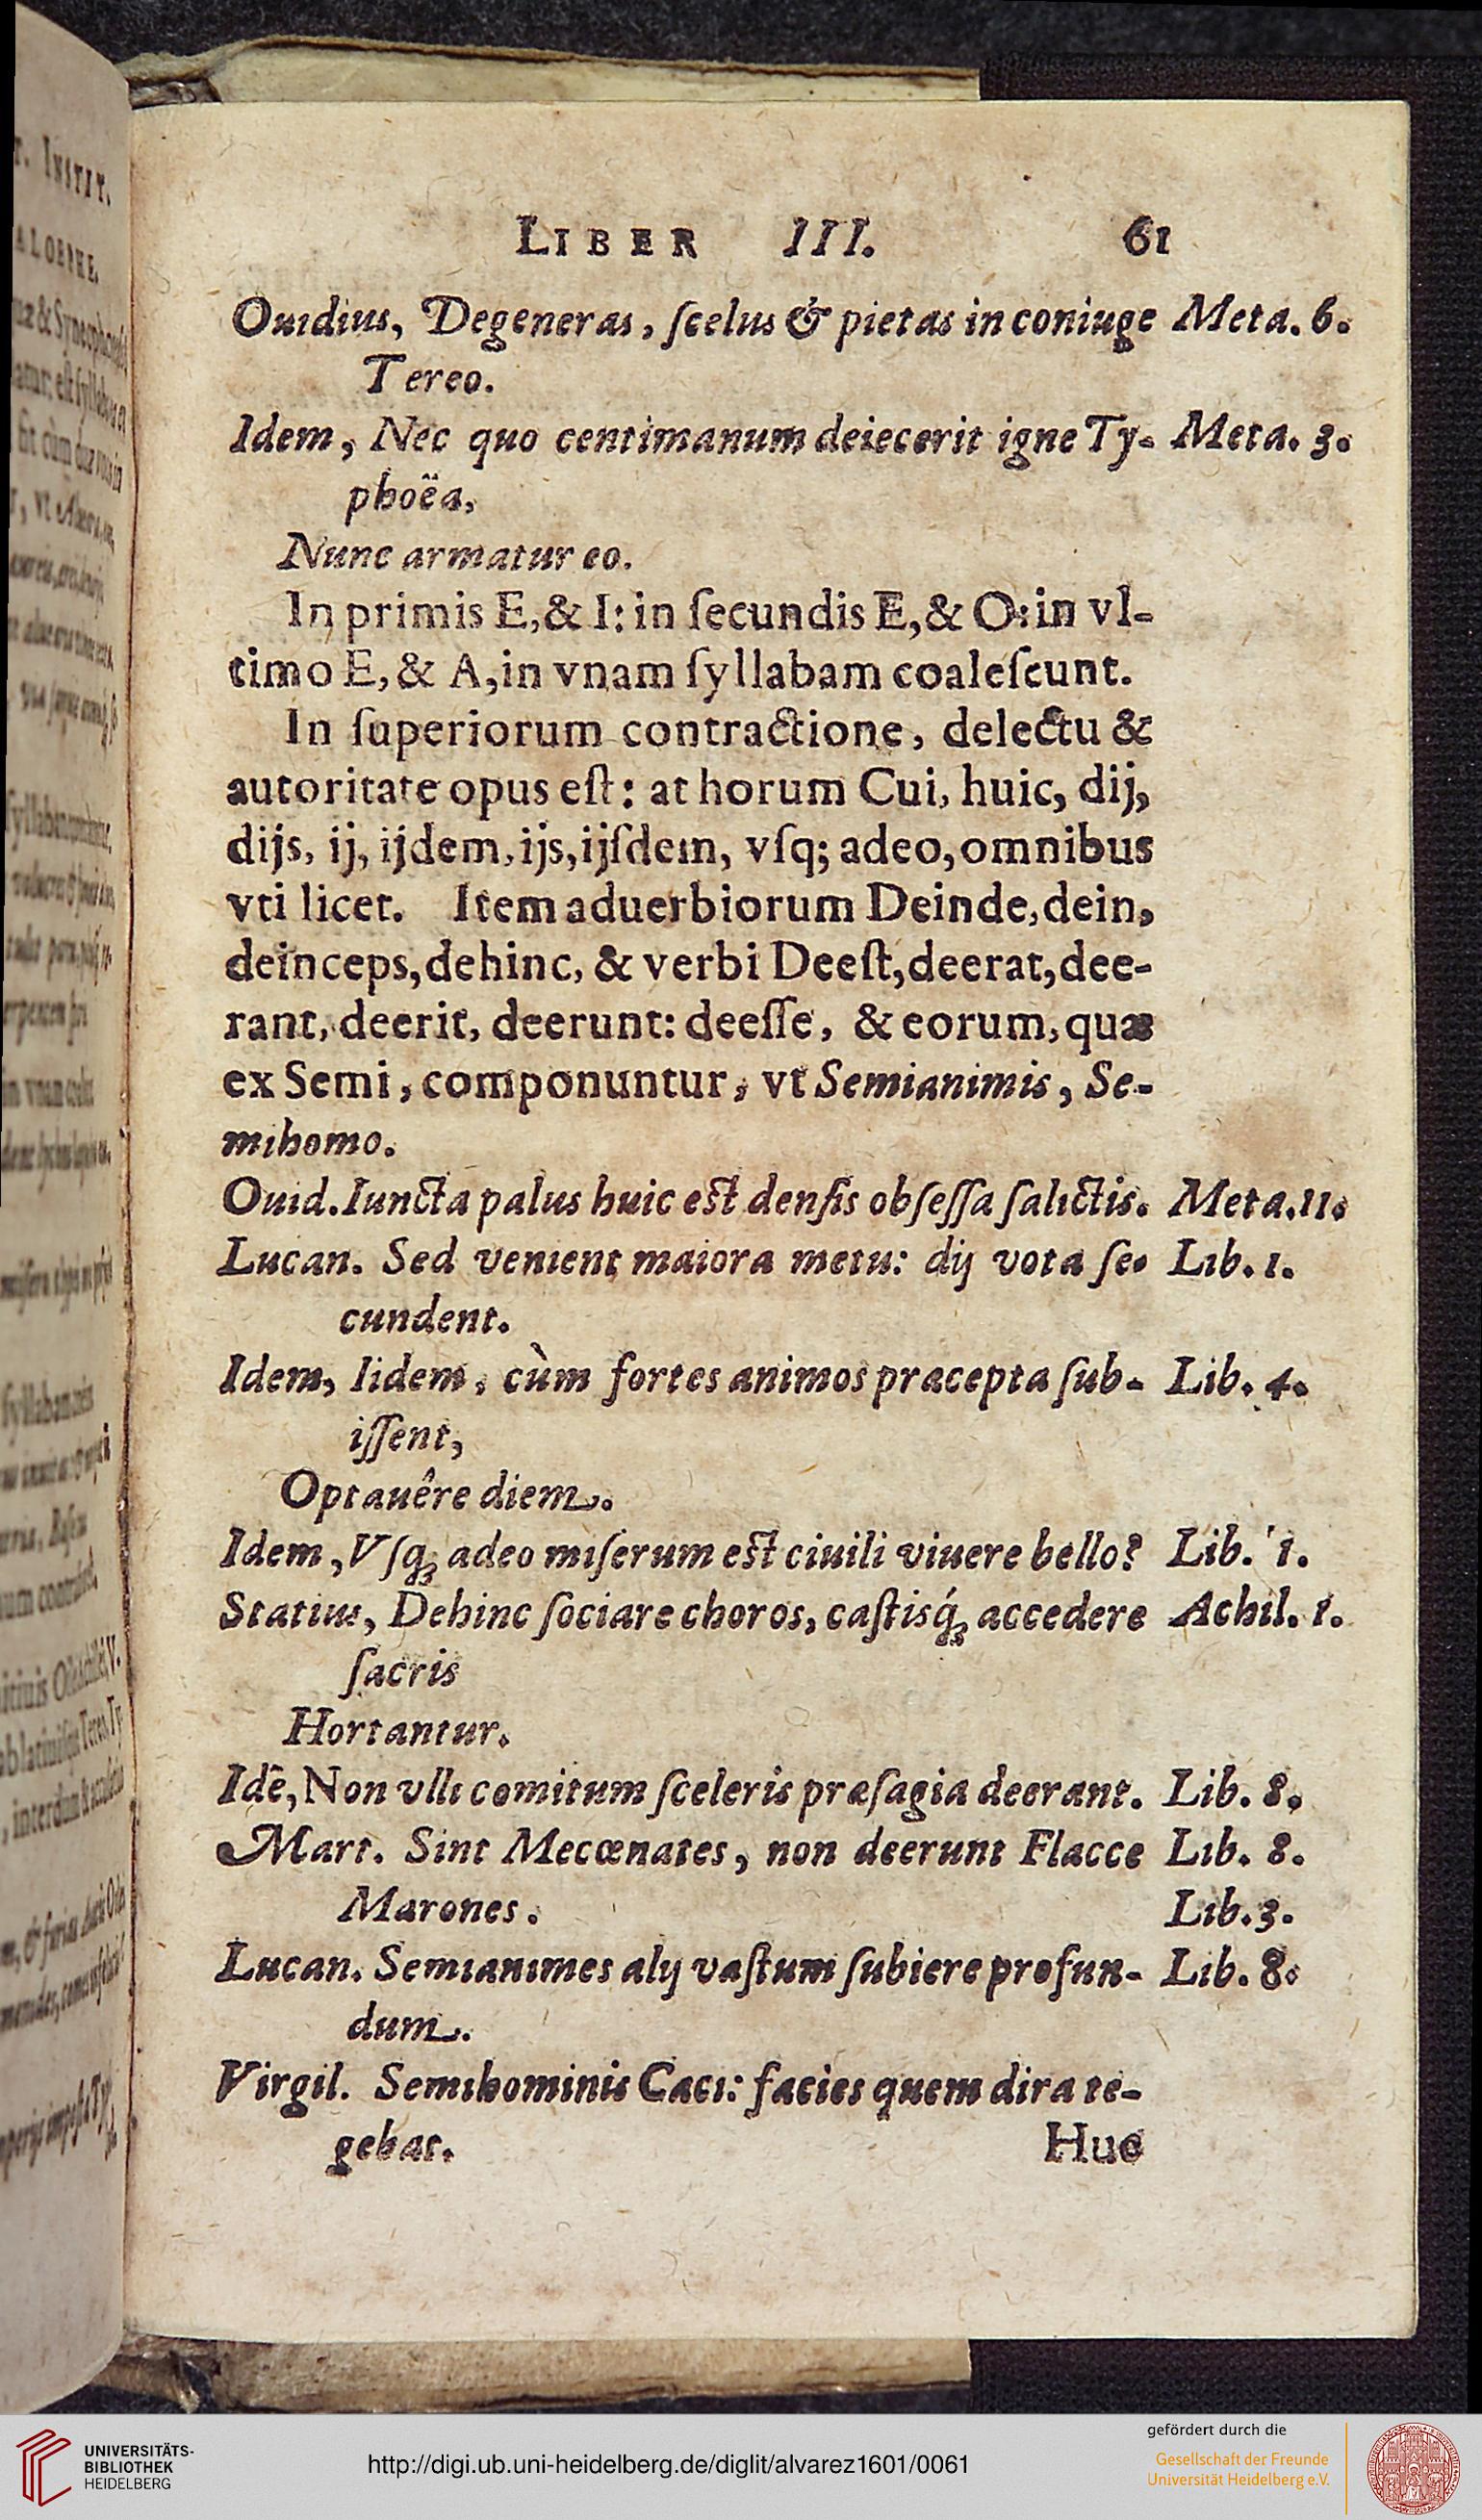 LIBER III. 61
Ouidius, Degeneras, ſcelus & pietas in coniuge Meta. 6.
Tereo.
Idem, Nec quo centimanum deiecerit igne Ty- Meta. 3.
phoëa,
Nunc armatur eo.
In primis E,& I: in ſecundis E,& O: in vl-
timo E,& A,in vnam ſyllabam coaleſcunt.
In ſuperiorum contractione, delectu &
autoritate opus eſt: at horum Cui, huic, dij,
dijs, ij, ijdem, ijs, ijſdem, vſq; adeo, omnibus
vti licet. Item aduerbiorum Deinde, dein,
deinceps, dehinc, & verbi Deeſt, deerat, dee-
rant, deerit, deerunt: deeſſe, & eorum, quæ
ex Semi, componuntur, vt Semianimis, Se-
mihomo.
Ouid. Iuncta palus huic eſt denſis obſeſſa ſalictis. Meta. 11.
Lucan. Sed venient maiora metu: dij vota ſe- Lib. 1.
cundent.
Idem, Iidem, cùm fortes animos præcepta ſub- Lib. 4.
iſſent,
Optauêre diem.
Idem, Vſq; adeo miſerum eſt ciuili viuere bello? Lib. 1.
Statius, Dehinc ſociare choros, caſtisq́; accedere Achil. 1.
ſacris
Hortantur.
Idē, Non vlli comitum ſceleris præſagia deerant. Lib. 8.
Mart. Sint Mecœnates, non deerunt Flacce Lib. 8.
Marones. Lib. 3.
Lucan. Semianimes alij vaſtum ſubiere profun- Lib. 8.
dum.
Virgil. Semihominis Caci: facies quem dira te-
gebat. Huc
UNIVERSITÄTS-
BIBLIOTHEK
HEIDELBERG
http://digi.ub.uni-heidelberg.de/diglit/alvarez1601/0061
gefördert durch die
Gesellschaft der Freunde
Universität Heidelberg e.V.